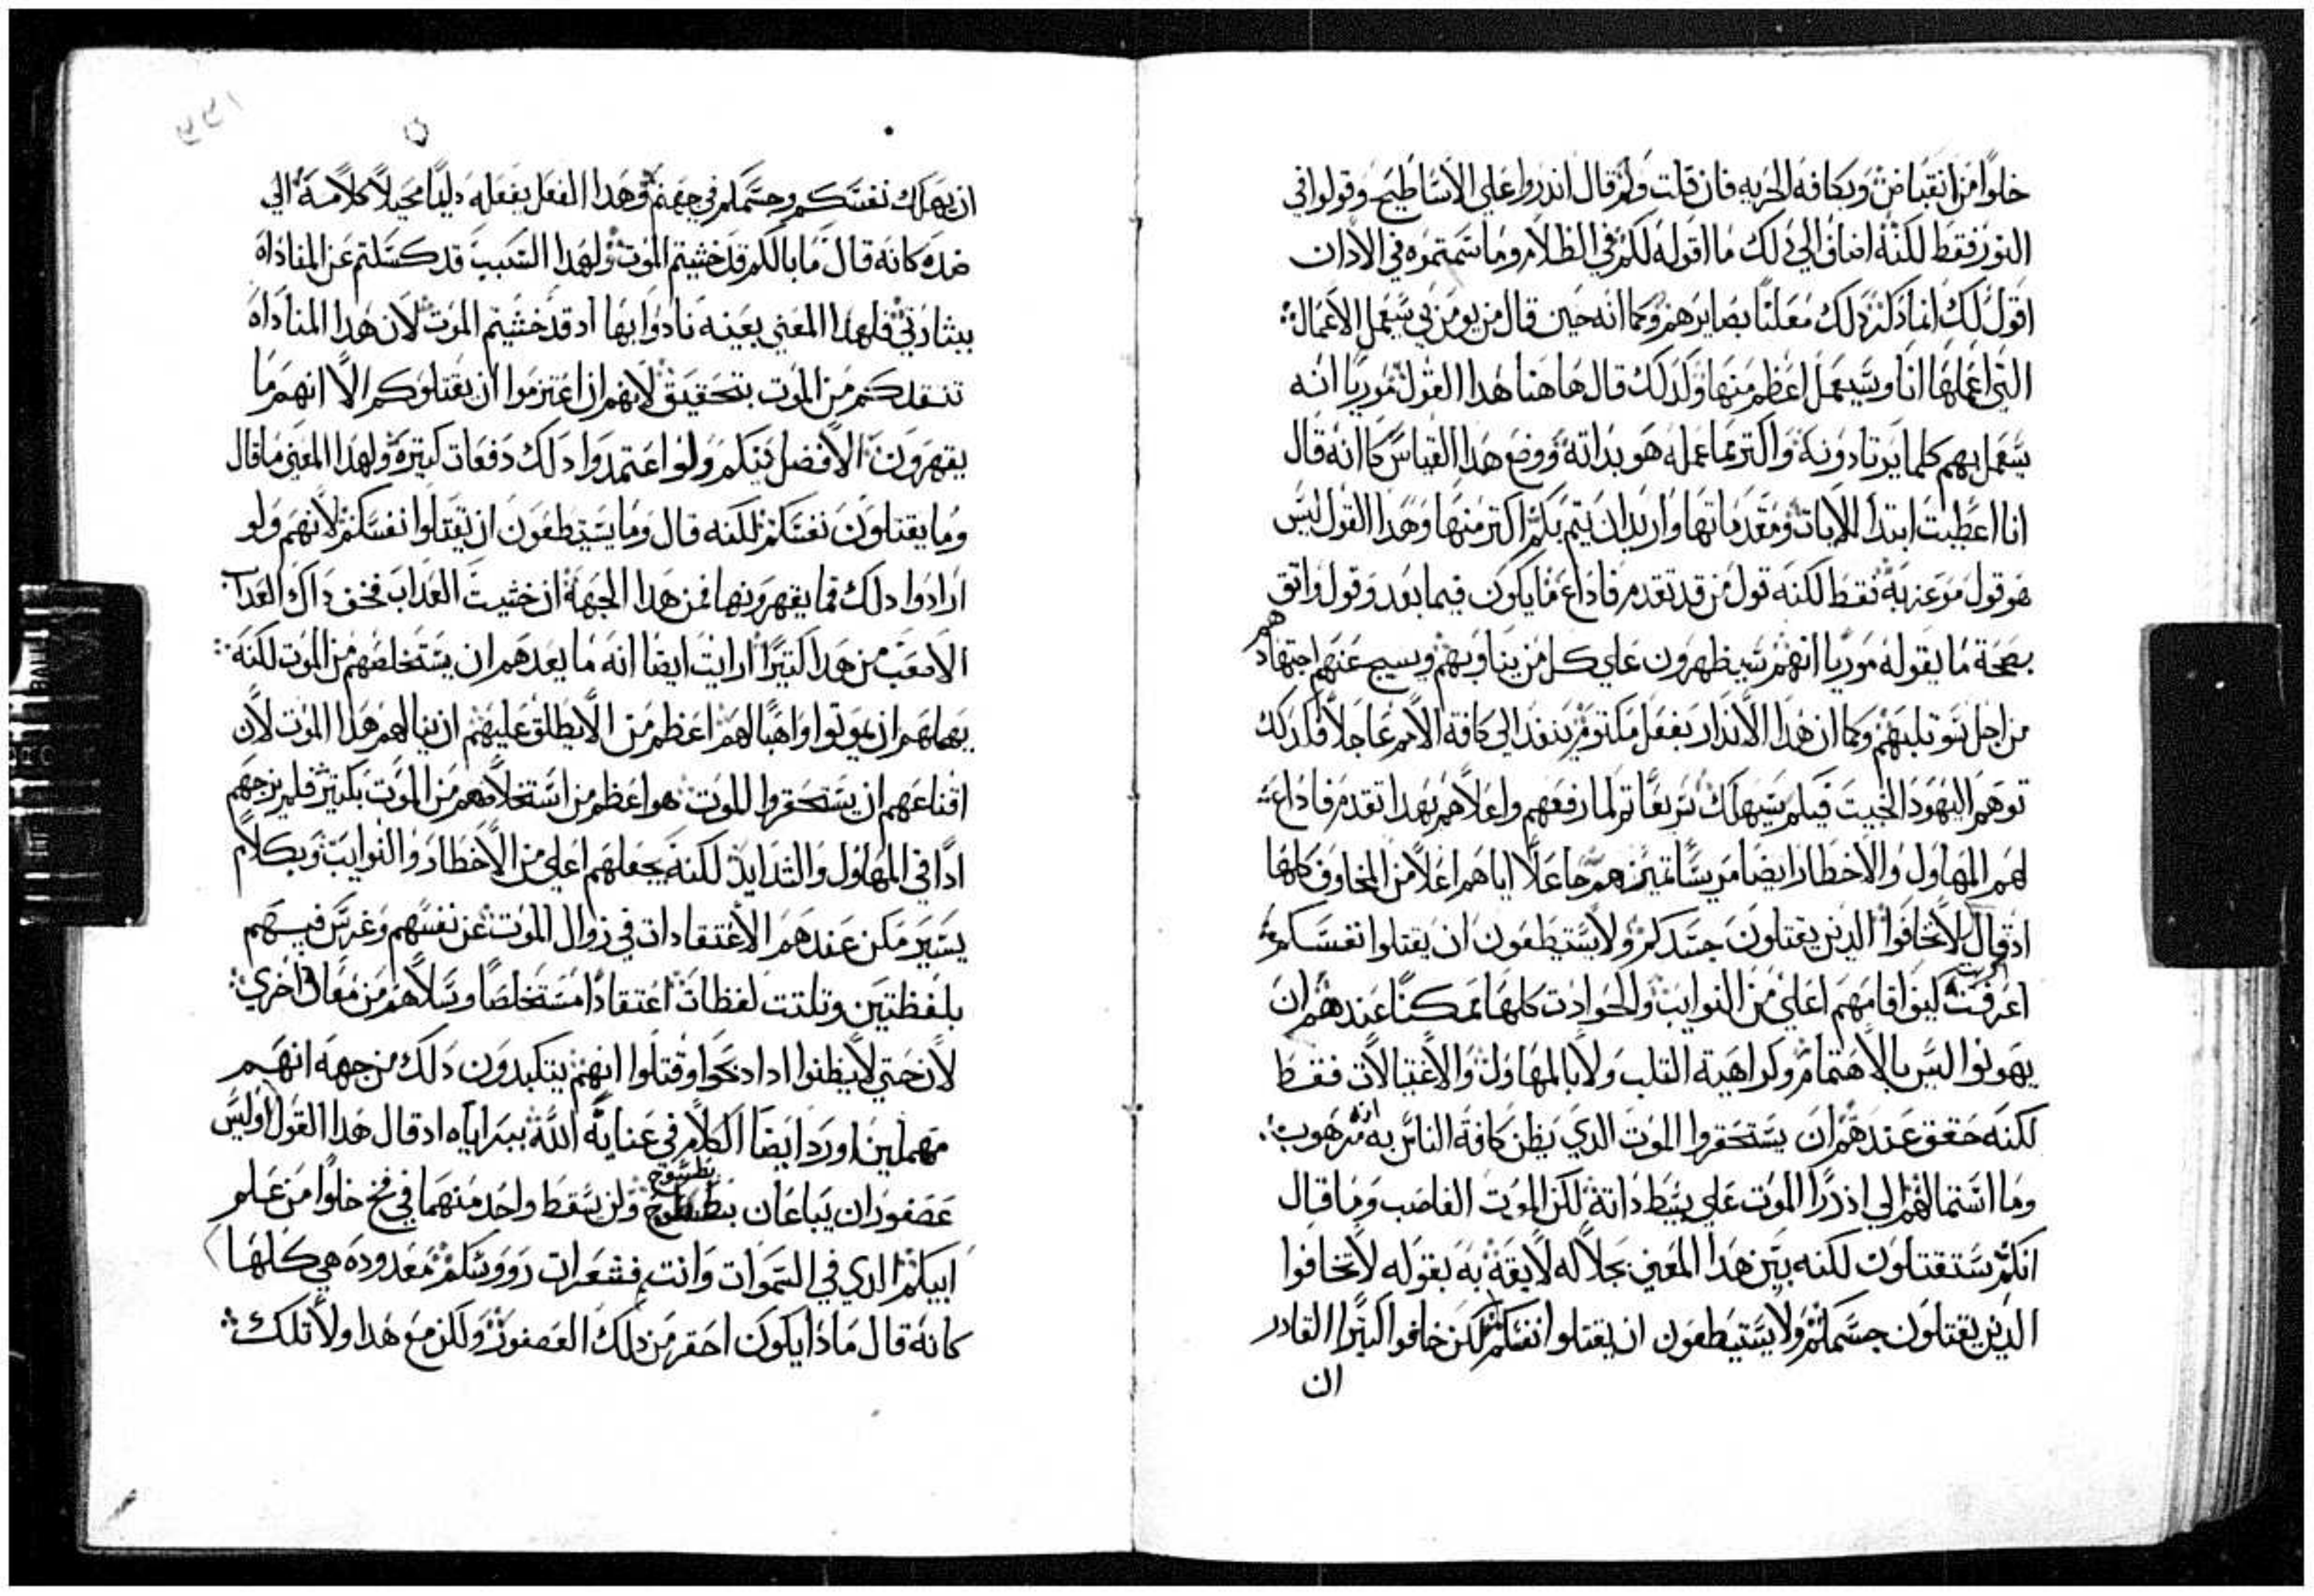 خلوًا من انقباض وبكافه الحريه فان قلت ولم قال اندروا علي الاساطيح وقولوا في
النور فقط لكنه اضاف الي دلك ما اقوله لكم في الظلام وما سمعتموه في الادان
اقول لك انما دكر دلك معلنًا بصايرهم وكما انه حين قال من يومن بي سيعمل الاعمال
التي اعملها انا وسيعمل اعظم منها وكدلك قال هاهنا هدا القول موريا انه
سيعمل بهم كلما يرتادونه واكتر مما عمله هو بداته ووضع هدا القياس كانه قال
انا اعطيت ابتدا الايات ومقدماتها واريد ان يتم بكم اكتر منها وهدا القول ليس
هو قول موعز به فقط لكنه قول من قد تقدم فاداع ما يكون فيما بعد وقول واتق
بصحة ما يقوله موريا انهم سيظهرون علي كل من يناويهم ويسيح عنهم اجتهادهم
من اجل وكما ان هدا الاندار بفعل مكتوم ينفد الي كافة الامم عاجلاً فكدلك
توهم اليهود الخبيت فيكم سيهلك سريعًا تم لما رفعهم واعلاهم بهدا تقدم فاداع
لهم المهاول والاخطار ايضا جاعلاً اياهم اعلا من المخاوف كلها
اد قال لا تخافوا الدين يقتلون جسدكم ولا يستطعون ان يقتلوا نفسكم
اعرفت كيف اقامهم اعلي من النوايب والحوادت كلها ممكنًا عندهم ان
يهونوا ليس بالاهتمام وكراهية التلب ولا بالمهاول والاغتيالات فقط
لكنه حقق عندهم ان يستحقروا الموت الدي يظن كافة الناس به انه مرهوب
وما استمالهم الي ازدرا الموت علي بسيط داته لكن الموت الغاصب وما قال
انكم ستقتلون لكنه بين هدا المعني بجلاله لايقة به بقوله لا تخافوا
الدين يقتلون جسمكم ولا يستيطعون ان يقتلوا نفسكم لكن خافوا اكترا القادر
ان
ان يهلك نفسكم وجسمكم في جهنم وهدا الفعل يفعله دايمًا محيلاً كلامه الي
ضده كانه قال ما بالكم قد خشيتم الموت ولهدا السبب قد كسلتم عن المناداه
ببشارتي فلهدا المعني بعينه نادوا بها اد قد خشيتم الموت لان هدا المناداه
تنقدكم من الموت بتحقيق لانهم ان اعتزموا ان يقتلوكم الا انهم ما
يقهرون الافضل فيكم ولو اعتمدوا دلك دفعات كتيرة ولهدا المعني ما قال
وما يقتلون نفسكم لكنه قال وما يستيطعون ان يقتلوا نفسكم لانهم ولو
ارادوا دلك فما يقهرونها فمن هدا الجهة ان خشيت العداب فخف داك العداب
الاصعب من هدا كتيرًا ارايت ايضا انه ما يعدهم ان يستخلصهم من الموت لكنه
يهملهم ان يموتوا واهبًا لهم اعظم من الا يطلق عليهم ان ينالهم هدا الموت لان
اقناعهم ان يستحقروا الموت هو اعظم من استخلاصهم من الموت بكتير فلم يزجهم
ادًا في المهاول والشدايد لكنه يجعلهم اعلي من الاخطار والنوايب وبكلام
يسير مكن عندهم الاعتقادات في زوال الموت عن نفسهم وغرس فيهم
بلفظتين وتلتت لفظات اعتقادًا مستخلصًا وسلاهم من معان اخري
لان حتي لا يظنوا ادا دبحوا وقتلوا انهم يتكبدون دلك من جهه انهم
مهملين اورد ايضا الكلام في عناية الله ببراياه اد قال هدا القول اوليس
عصفوران يباعان بطسوج ولن يسقط واحد منهما في فخ خلوًا من علم
ابيكم الدي في السموات وانتم فشعرات رووسكم معدوده هي كلها
كانه قال مادا يكون احقر من دلك العصفور ولكن مع هدا ولا تلك